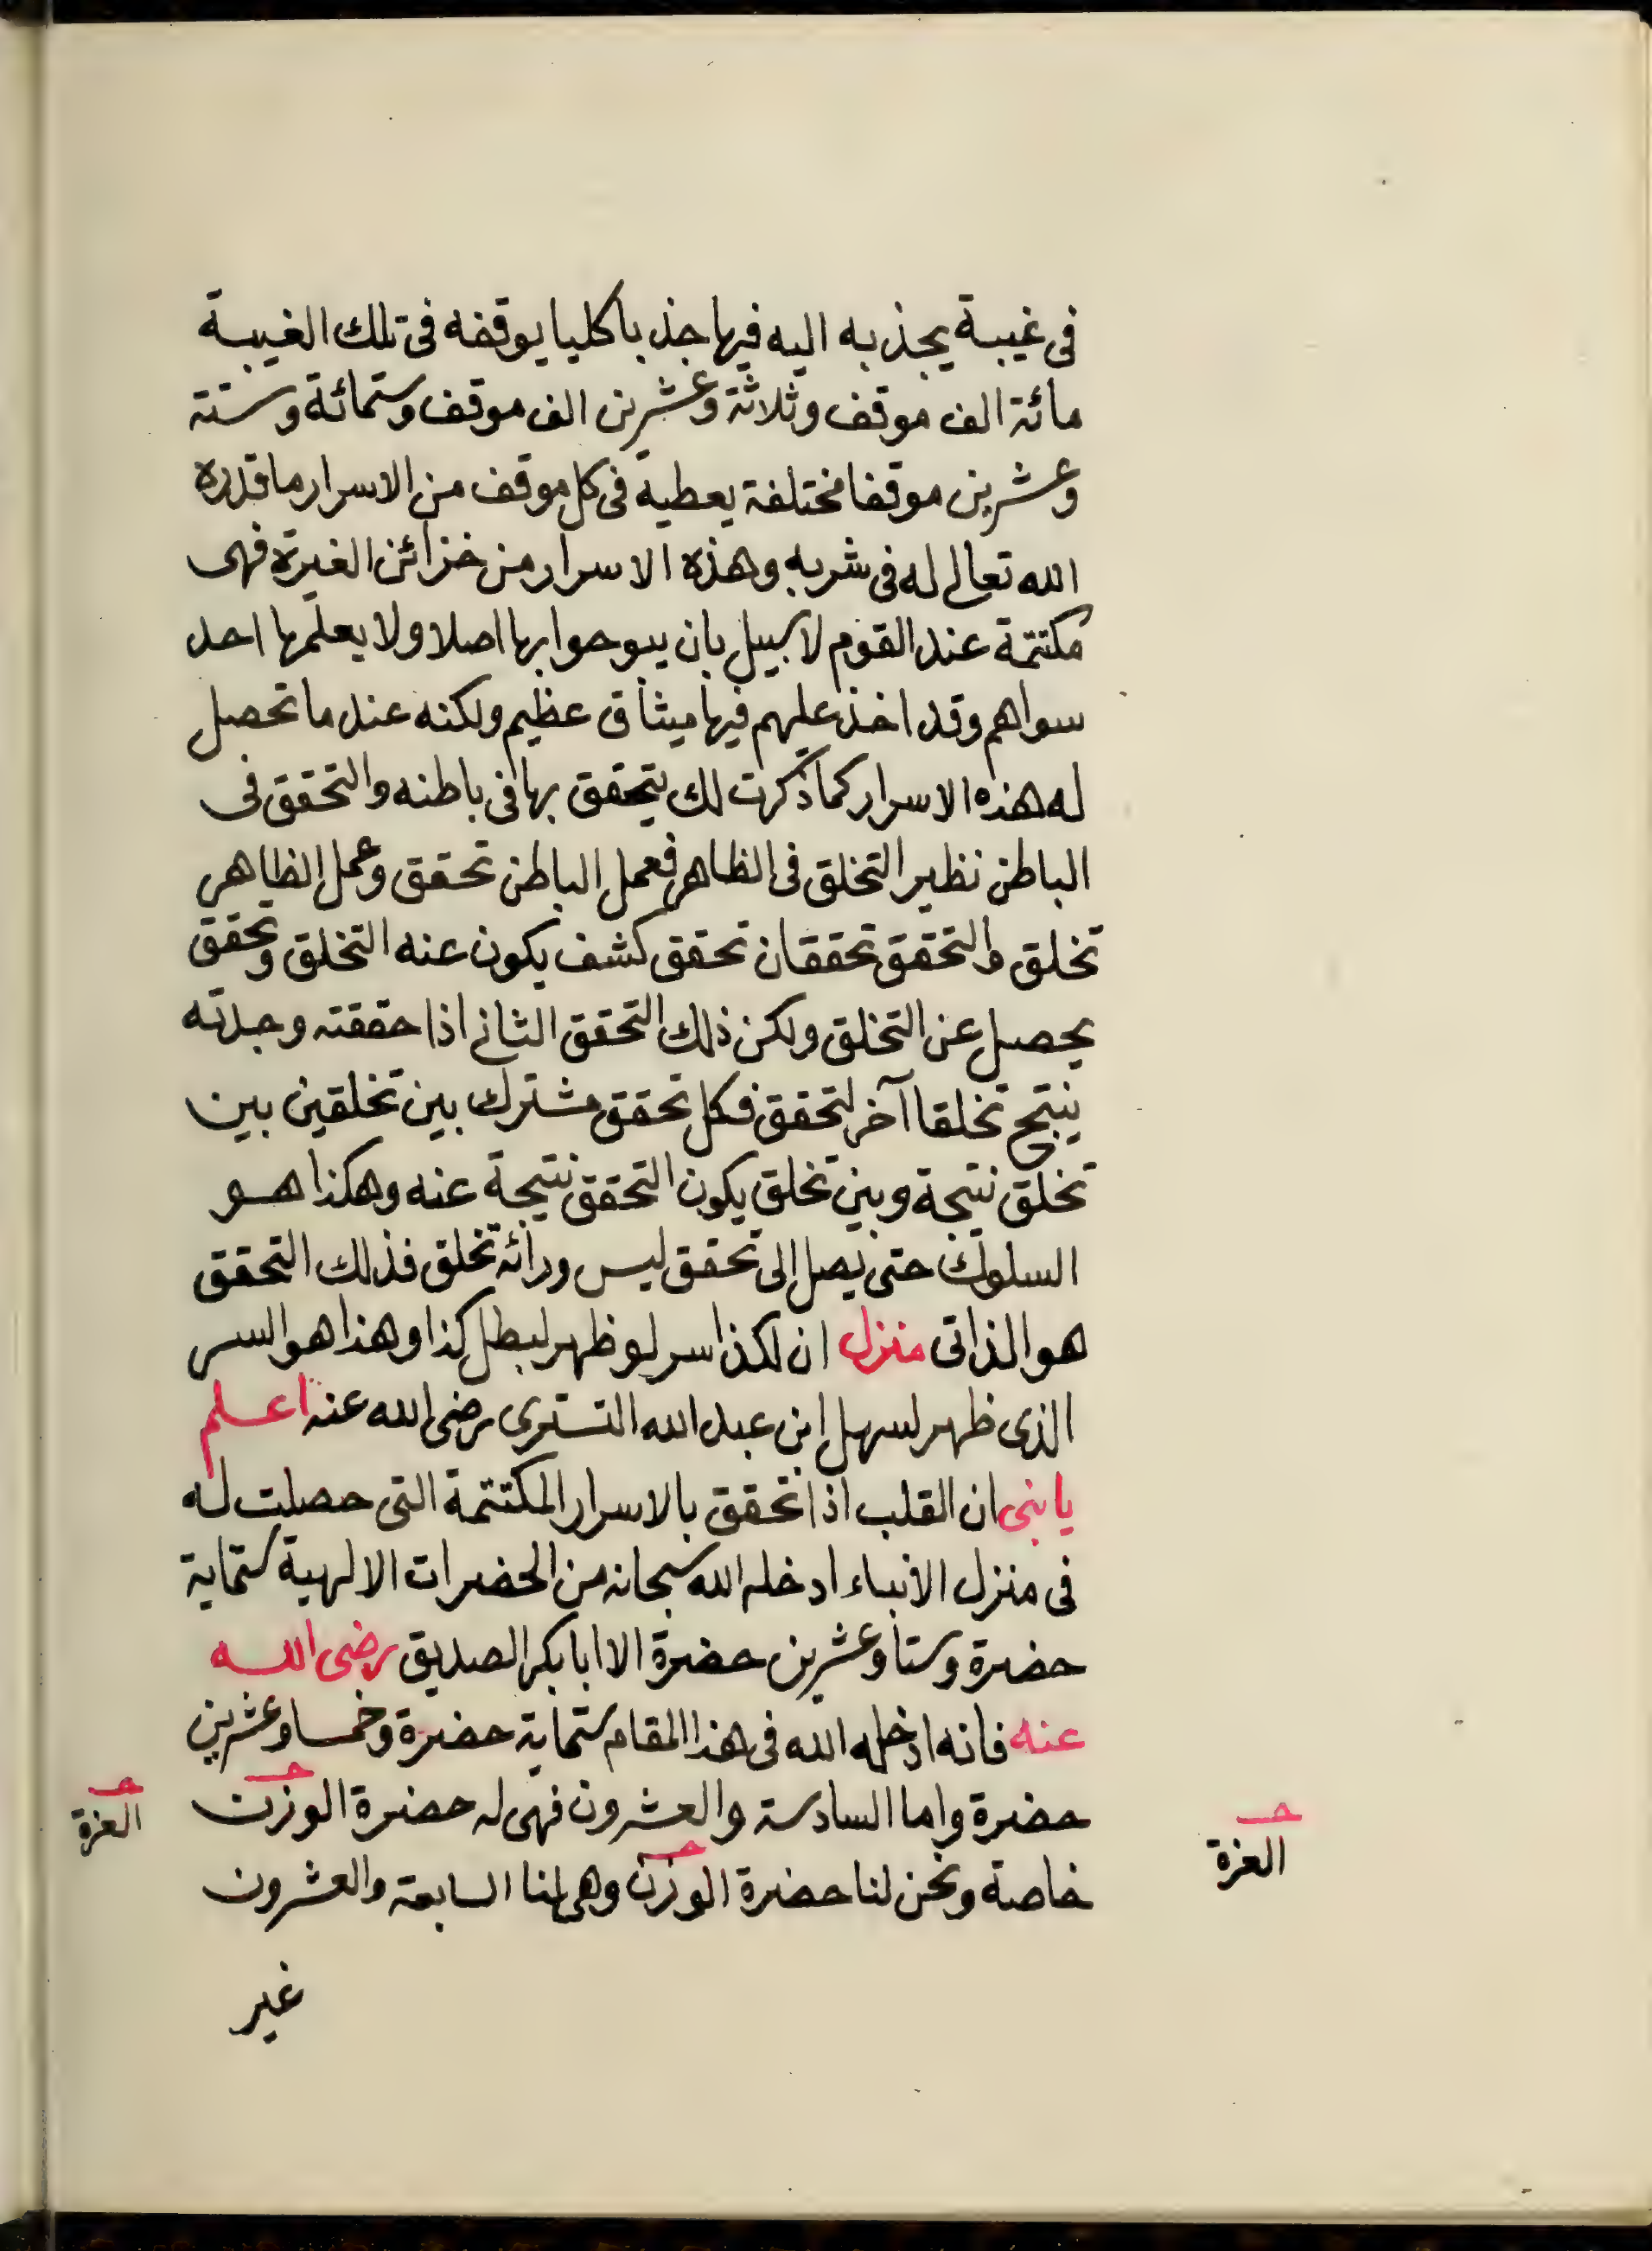 في غيبة يجذبه اليه فيها جذبا كليا يوقفه في تلك الغيبة
مائة الف موقف وثلاثة وعشرين الف موقف وستمائة وستة
وعشرين موقفا مختلفة يعطيه في كل موقف من الاسرار ما قدره
الله تعالى له في شربه وهذه الاسرار من خزائن الغيرة فهى
مكتتمة عند القوم لا سبيل بان يبوحوا بها اصلا ولا يعلمها احد
سواهم وقد اخذ عليهم فيها ميثاق عظيم ولكنه عند ما تحصل
له هذه الاسرار كما ذكرت لك يتحقق بها في باطنه والتحقق في
الباطن نظير التخلق في الظاهر فعمل الباطن تحقق وعمل الظاهر
تخلق والتحقق تحققان تحقق كشف يكون عنه التخلق وتحقق
يحصل عن التخلق ولكن ذلك التحقق الثاني اذا حققته وجدته
ينتج تخلقا آخر لتحقق فكل تحقق مشترك بين تخلقين بين
تخلق نتيجة وبين تخلق يكون التحقق نتيجة عنه وهكذا هو
السلوك حتى يصل الى تحقق ليس ورائه تخلق فذلك التحقق
هو الذاتى منزل ان لكذا سر لو ظهر لبطل كذا وهذا هو السر
الذى ظهر لسهل ابن عبد الله التسترى رضى الله عنه اعلم
يا بنى ان القلب اذا تحقق بالاسرار المكتتمة التى حصلت له
في منزل الانبياء ادخله الله سبحانه من الحضرات الالهية ستماية
حضرة وستا وعشرين حضرة الا ابا بكر الصديق رضى الله
عنه فانه ادخله الله في هذا المقام ستماية حضرة وخمسا وعشرين
حضرة واما السادسة والعشرون فهى له حضرة الوزن
خاصة ونحن لنا حضرة الوزن وهى لنا السابعة والعشرون
غير
حـ
العزة
حـ
العزة